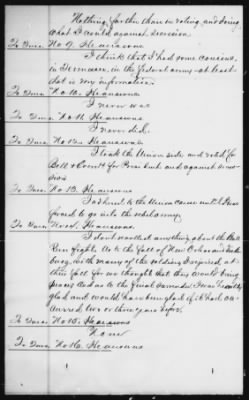 Nothing further than in voting, and doing
what I could against secession
To Inter. No 9. He answers
I think that I had some cousins,
in Tennessee, in the federal army - at least
that is my information.
To Inter. No 10. He answers
I never was
To Inter. No 11. He answers
I never did.
To Inter. No 12. He answers
I took the Union side and voted for
Bell & Everett for Pres and against
To Inter. No 13. He answers
I adhered to the Union cause until I was
forced to go into the rebel army.
To Inter. No 14. He answers
I don't recollect anything about the Bull
Run fight. As to the fall of New Orleans &
with many of the soldiers I rejoiced, at
their fall for we thought that they would bring
peace. And as to the final surrender I was heartily
glad and would have been glad if it had
curred two or three years before.
To Inter. No 15. He answers
None
To Inter. No 16. He answers